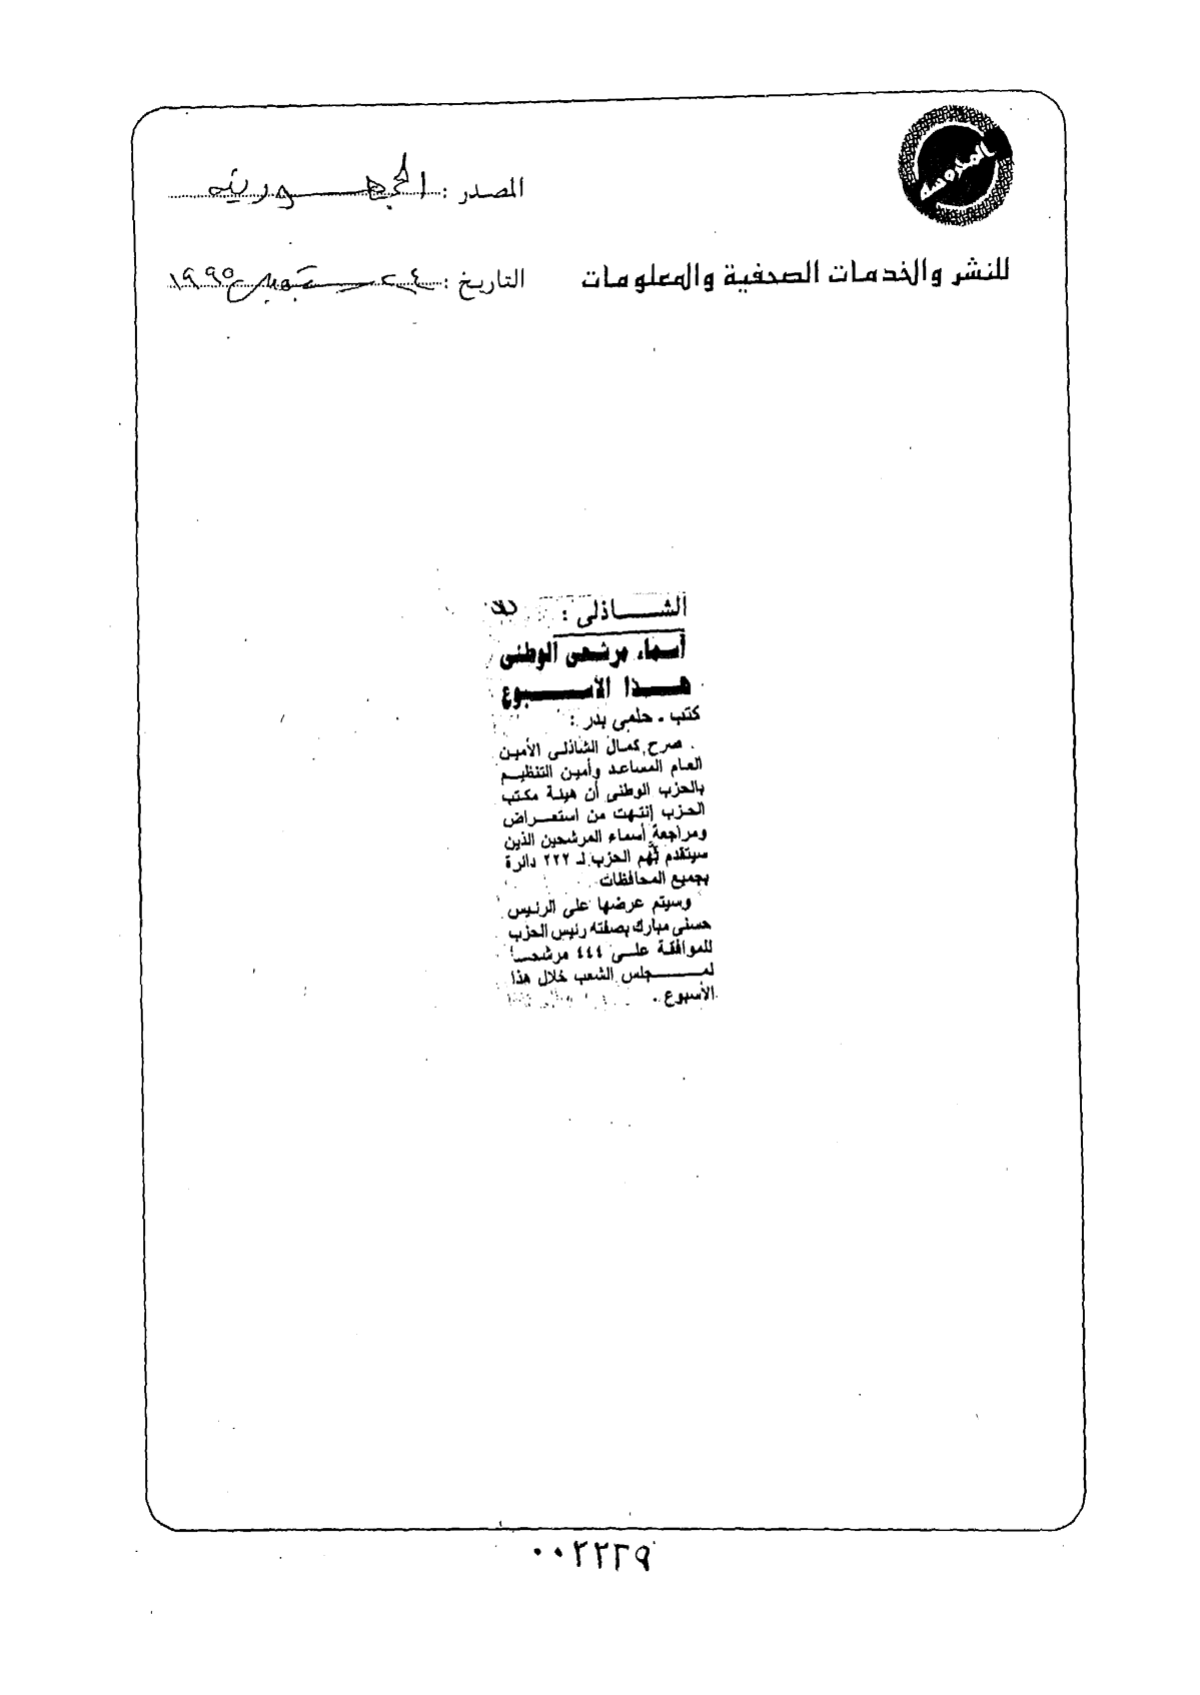 المحروسة
المصدر : الجمهورية
للنشر والخدمات الصحفية والمعلومات
التاريخ : ٢٤ سبتمبر ١٩٩٥
الشاذلى :
أسماء مرشحى الوطنى
هذا الأسبوع
كتب - حلمى بدر :
صرح كمال الشاذلى الأمين
العام المساعد وأمين التنظيم
بالحزب الوطنى أن هيئة مكتب
الحزب إنتهت من استعراض
ومراجعة أسماء المرشحين الذين
سيتقدم بهم الحزب لـ ٢٢٢ دائرة
بجميع المحافظات
وسيتم عرضها على الرئيس
حسنى مبارك بصفته رئيس الحزب
للموافقة على ٤٤٤ مرشحا
لمجلس الشعب خلال هذا
الأسبوع .
٠٠٢٢٢٩